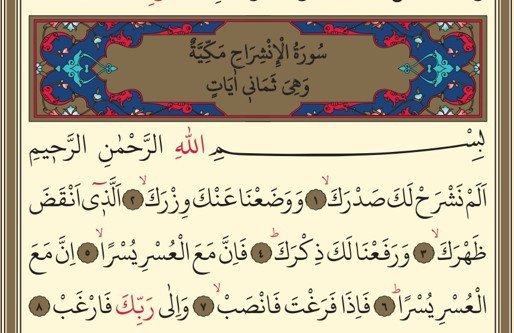 سُورَةُ الْاِنْشِرَاحِ مَكِّيَّةٌ
وَهِىَ ثَمَانٖى اٰيَاتٍ
بِسْمِ اللّٰهِ الرَّحْمٰنِ الرَّحٖيمِ
اَلَمْ نَشْرَحْ لَكَ صَدْرَكَۙ ﴿١﴾ وَوَضَعْنَا عَنْكَ وِزْرَكَۙ ﴿٢﴾ اَلَّذٖٓى اَنْقَضَ
ظَهْرَكَۙ ﴿٣﴾ وَرَفَعْنَا لَكَ ذِكْرَكَؕ ﴿٤﴾ فَاِنَّ مَعَ الْعُسْرِ يُسْرًاۙ ﴿٥﴾ اِنَّ مَعَ
الْعُسْرِ يُسْرًاؕ ﴿٦﴾ فَاِذَا فَرَغْتَ فَانْصَبْۙ ﴿٧﴾ وَاِلٰى رَبِّكَ فَارْغَبْ ﴿٨﴾